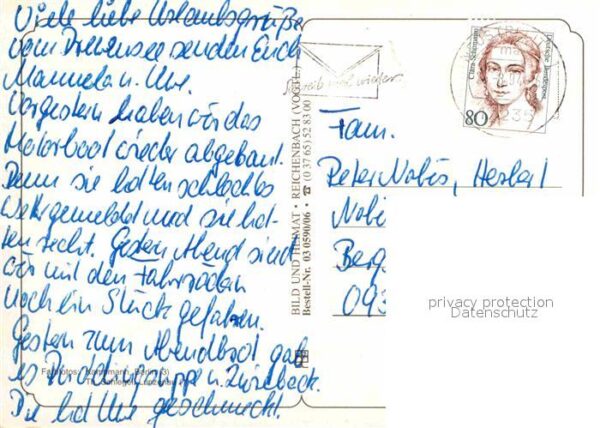 Viele liebe Urlaubsgrüße
vom Dollensee senden Euch
Manuela u. Uwe.
Vorgestern haben wir das
Motorboot wieder abgebaut.
Denn sie hatten schlechtes
Wetter gemeldet und sie hat-
ten recht. Gestern Abend sind
wir mit den Fahrrädern
noch ein Stück gefahren.
Gestern zum Abendbrot gab
es Puddingsuppe u. Zwieback.
Die hat Uwe geschmeckt.
Farbfotos: Berlin (3)
BILD UND HEIMAT • REICHENBACH (VOGTL.)
Bestell-Nr. 03 0590/06 • ☎ (0 37 65) 52 83 00
wieder
Clara Schumann
Deutsche Bundespost
80
Fam.
Peter Nobis, Herbert
Nobi
Berg
093
privacy protection
Datenschutz